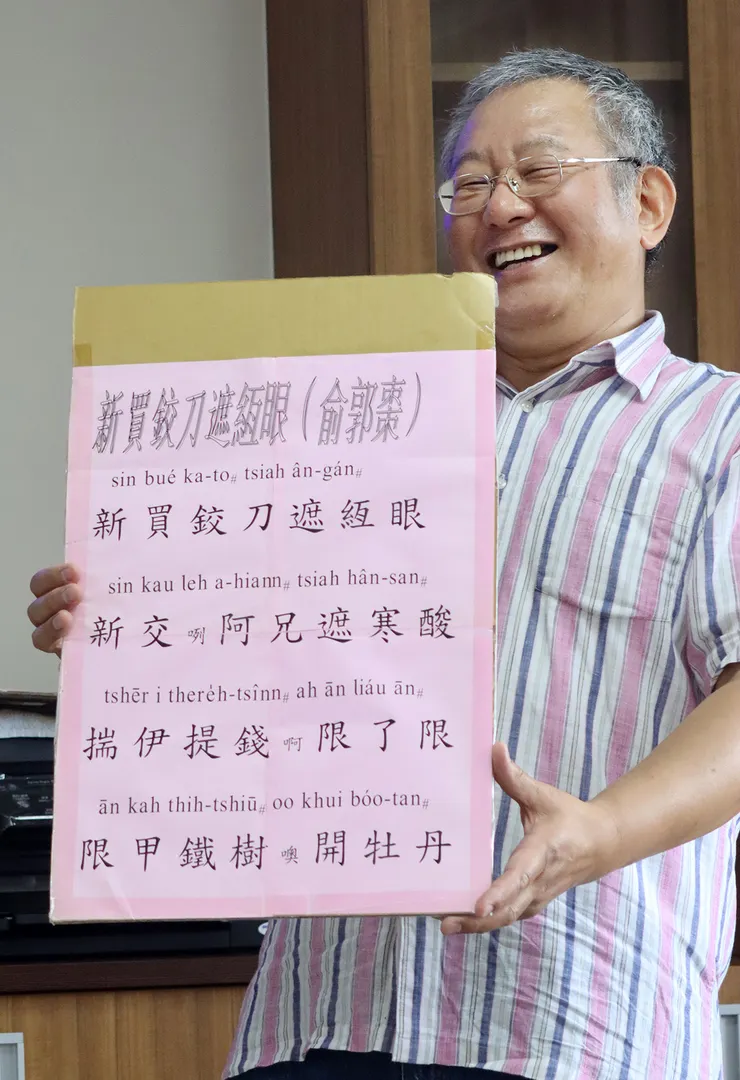 新買鉸刀遮絚眼（俞郭棗）
sin bué ka-to# tsiah ân-gán#
新買鉸刀遮絚眼
sin kau leh a-hiann# tsiah hân-san#
新交咧阿兄遮寒酸
tshēr i there̍h-tsînn# ah ān liáu ān#
揣伊提錢啊限了限
ān kah thih-tshiū# oo khui bóo-tan#
限甲鐵樹噢開牡丹